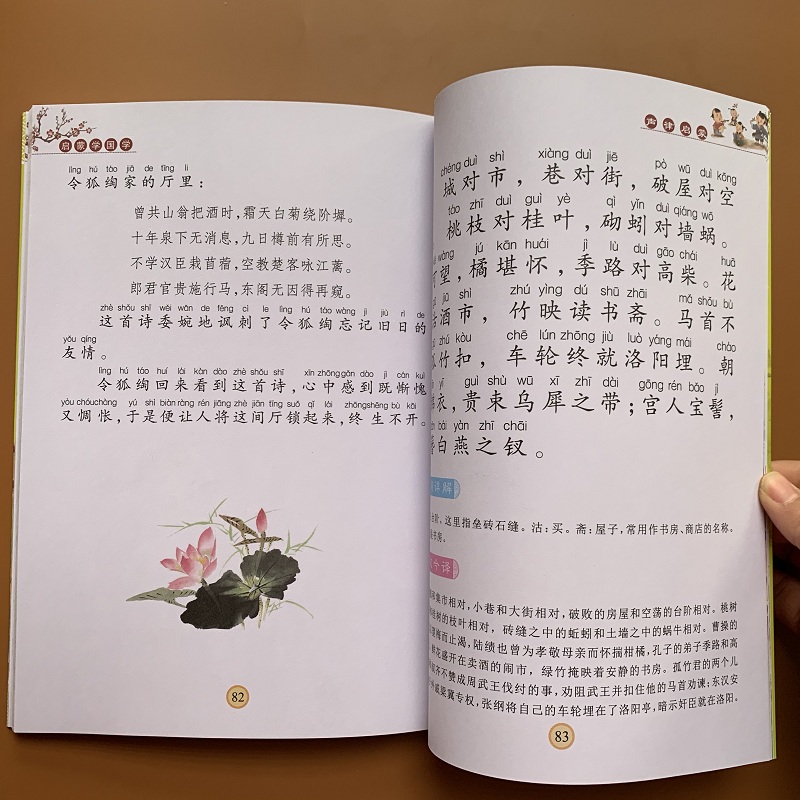 启蒙学国学
lìng hú táo jiā de tīng lǐ
令狐绹家的厅里：
曾共山翁把酒时，霜天白菊绕阶墀。
十年泉下无消息，九日樽前有所思。
不学汉臣栽苜蓿，空教楚客咏江蓠。
郎君官贵施行马，东阁无因得再窥。
zhè shǒu shī wěi wǎn de fěng cì le lìng hú táo wàng jì jiù rì de
这首诗委婉地讽刺了令狐绹忘记旧日的
yǒu qíng
友情。
lìng hú táo huí lái kàn dào zhè shǒu shī xīn zhōng gǎn dào jì cán kuì
令狐绹回来看到这首诗，心中感到既惭愧
yòu chóuchàng yú shì biàn ràng rén jiāng zhè jiān tīng suǒ qǐ lái zhōngshēng bù kāi
又惆怅，于是便让人将这间厅锁起来，终生不开。
82
声律启蒙
chéng duì shì xiàng duì jiē pò wū duì kōng
城对市，巷对街，破屋对空
táo zhī duì guì yè qì yǐn duì qiáng wō
桃枝对桂叶，砌蚓对墙蜗。
wàng jú kān huái jì lù duì gāo chái huā
望，橘堪怀，季路对高柴。花
jiǔ shì zhú yìng dú shū zhāi mǎ shǒu bù
沽酒市，竹映读书斋。马首不
zhú kòu chē lún zhōng jiù luò yáng mái cháo
竹扣，车轮终就洛阳埋。朝
yī guì shù wū xī zhī dài gōng rén bǎo jì
衣，贵束乌犀之带；宫人宝髻，
bái yàn zhī chāi
白燕之钗。
详解
台阶，这里指垒砖石缝。沽：买。斋：屋子，常用作书房、商店的名称。
书房。
今译
集市相对，小巷和大街相对，破败的房屋和空荡的台阶相对。桃树
树的枝叶相对，砖缝之中的蚯蚓和土墙之中的蜗牛相对。曹操的
梅而止渴，陆绩也曾为孝敬母亲而怀揣柑橘，孔子的弟子季路和高
鲜花盛开在卖酒的闹市，绿竹掩映着安静的书房。孤竹君的两个儿
叔齐不赞成周武王伐纣的事，劝阻武王并扣住他的马首劝谏；东汉安
戚梁冀专权，张纲将自己的车轮埋在了洛阳亭，暗示奸臣就在洛阳。
83